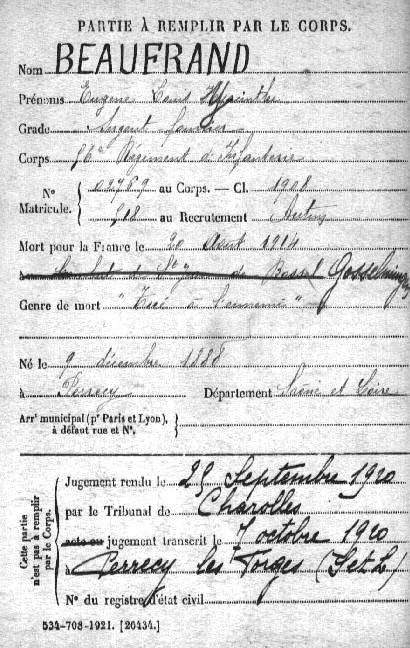 PARTIE À REMPLIR PAR LE CORPS.
Nom BEAUFRAND
Prénoms Eugène Louis Hyacinthe
Grade Sergent Fourrier
Corps Régiment d'Infanterie
N° Matricule. { 02769 au Corps. — Cl. 1908
918 au Recrutement Autun
Mort pour la France le 20 Août 1914
à Gosselming
Genre de mort "Tué à l'ennemi"
Né le 9 décembre 1888
à Perrecy Département Saône et Loire
Arrt municipal (pr Paris et Lyon), à défaut rue et N°. }
Cette partie n'est pas à remplir par le Corps.
Jugement rendu le 25 Septembre 1920
par le Tribunal de Charolles
acte ou jugement transcrit le 7 octobre 1920
à Perrecy les Forges (S et L)
N° du registre d'état civil
534-708-1921. [26434.]